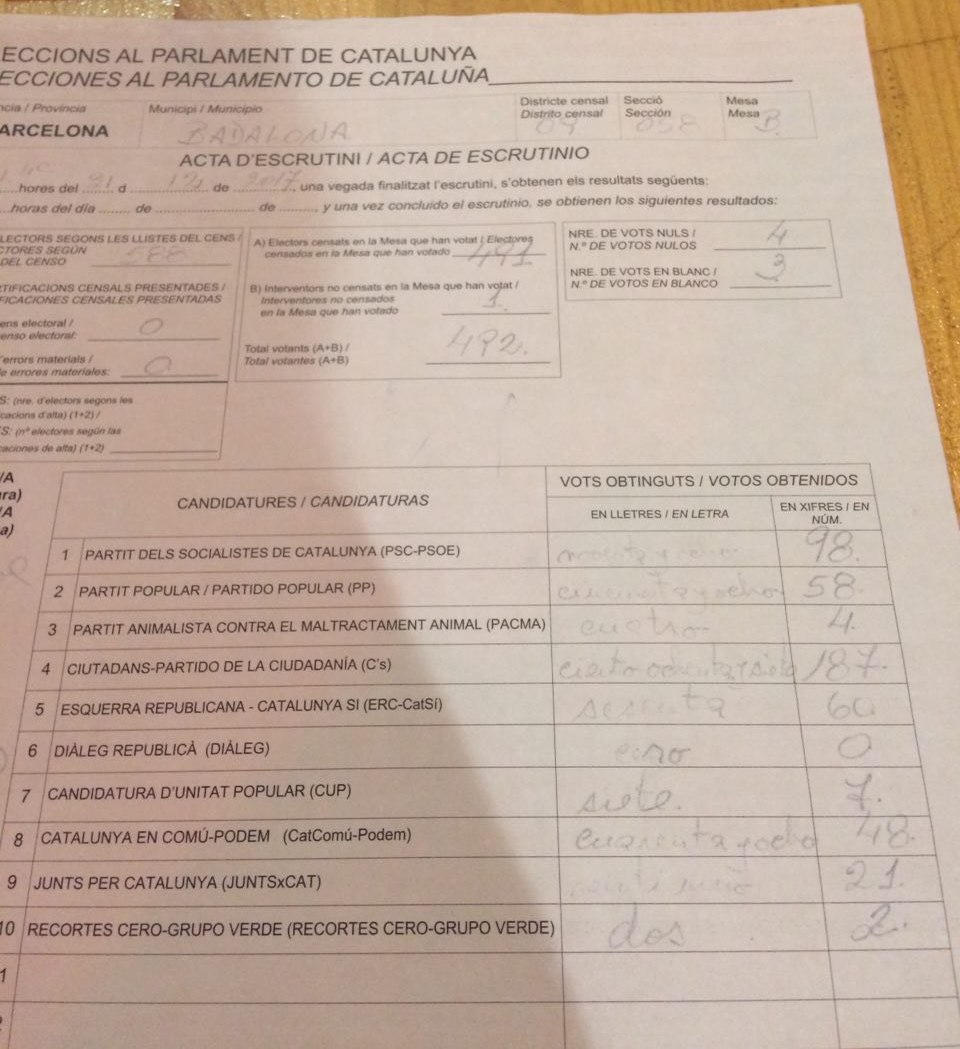 ECCIONS AL PARLAMENT DE CATALUNYA
ECCIONES AL PARLAMENTO DE CATALUÑA
ncia / Provincia Municipi / Municipio Districte censal Secció Mesa
Distrito censal Sección Mesa
ARCELONA BADALONA 04 058 B
ACTA D'ESCRUTINI / ACTA DE ESCRUTINIO
hores del 21 d 12 de 2017, una vegada finalitzat l'escrutini, s'obtenen els resultats següents:
horas del día de de , y una vez concluido el escrutinio, se obtienen los siguientes resultados:
LECTORS SEGONS LES LLISTES DEL CENS /
CTORES SEGÚN
DEL CENSO 588
RTIFICACIONS CENSALS PRESENTADES /
FICACIONES CENSALES PRESENTADAS
ens electoral /
enso electoral: 0
errors materials /
e errores materiales: 0
S: (nre. d'electors segons les
cacions d'alta) (1+2) /
S: (nº electores según las
caciones de alta) (1+2)
A) Electors censats en la Mesa que han votat / Electores
censados en la Mesa que han votado 491
B) Interventors no censats en la Mesa que han votat /
Interventores no censados
en la Mesa que han votado 1.
Total votants (A+B) /
Total votantes (A+B) 492.
NRE. DE VOTS NULS /
N.º DE VOTOS NULOS 4
NRE. DE VOTS EN BLANC /
N.º DE VOTOS EN BLANCO 3
/A
ura)
/A
a)
CANDIDATURES / CANDIDATURAS VOTS OBTINGUTS / VOTOS OBTENIDOS
EN LLETRES / EN LETRA EN XIFRES / EN
NÚM.
1 PARTIT DELS SOCIALISTES DE CATALUNYA (PSC-PSOE) noventa y ocho 98.
2 PARTIT POPULAR / PARTIDO POPULAR (PP) cincuenta y ocho 58.
3 PARTIT ANIMALISTA CONTRA EL MALTRACTAMENT ANIMAL (PACMA) cuatro 4.
4 CIUTADANS-PARTIDO DE LA CIUDADANÍA (C's) ciento ochenta y siete 187.
5 ESQUERRA REPUBLICANA - CATALUNYA SI (ERC-CatSí) sesenta 60
6 DIÀLEG REPUBLICÀ (DIÀLEG) 0
7 CANDIDATURA D'UNITAT POPULAR (CUP) siete. 7.
8 CATALUNYA EN COMÚ-PODEM (CatComú-Podem) cuarenta y ocho 48.
9 JUNTS PER CATALUNYA (JUNTSxCAT) 21.
10 RECORTES CERO-GRUPO VERDE (RECORTES CERO-GRUPO VERDE) dos 2.
1
2